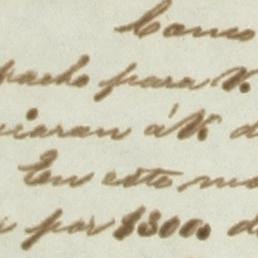 Como
pacho para V.
iaran á V. d
En este mo
por $300. d